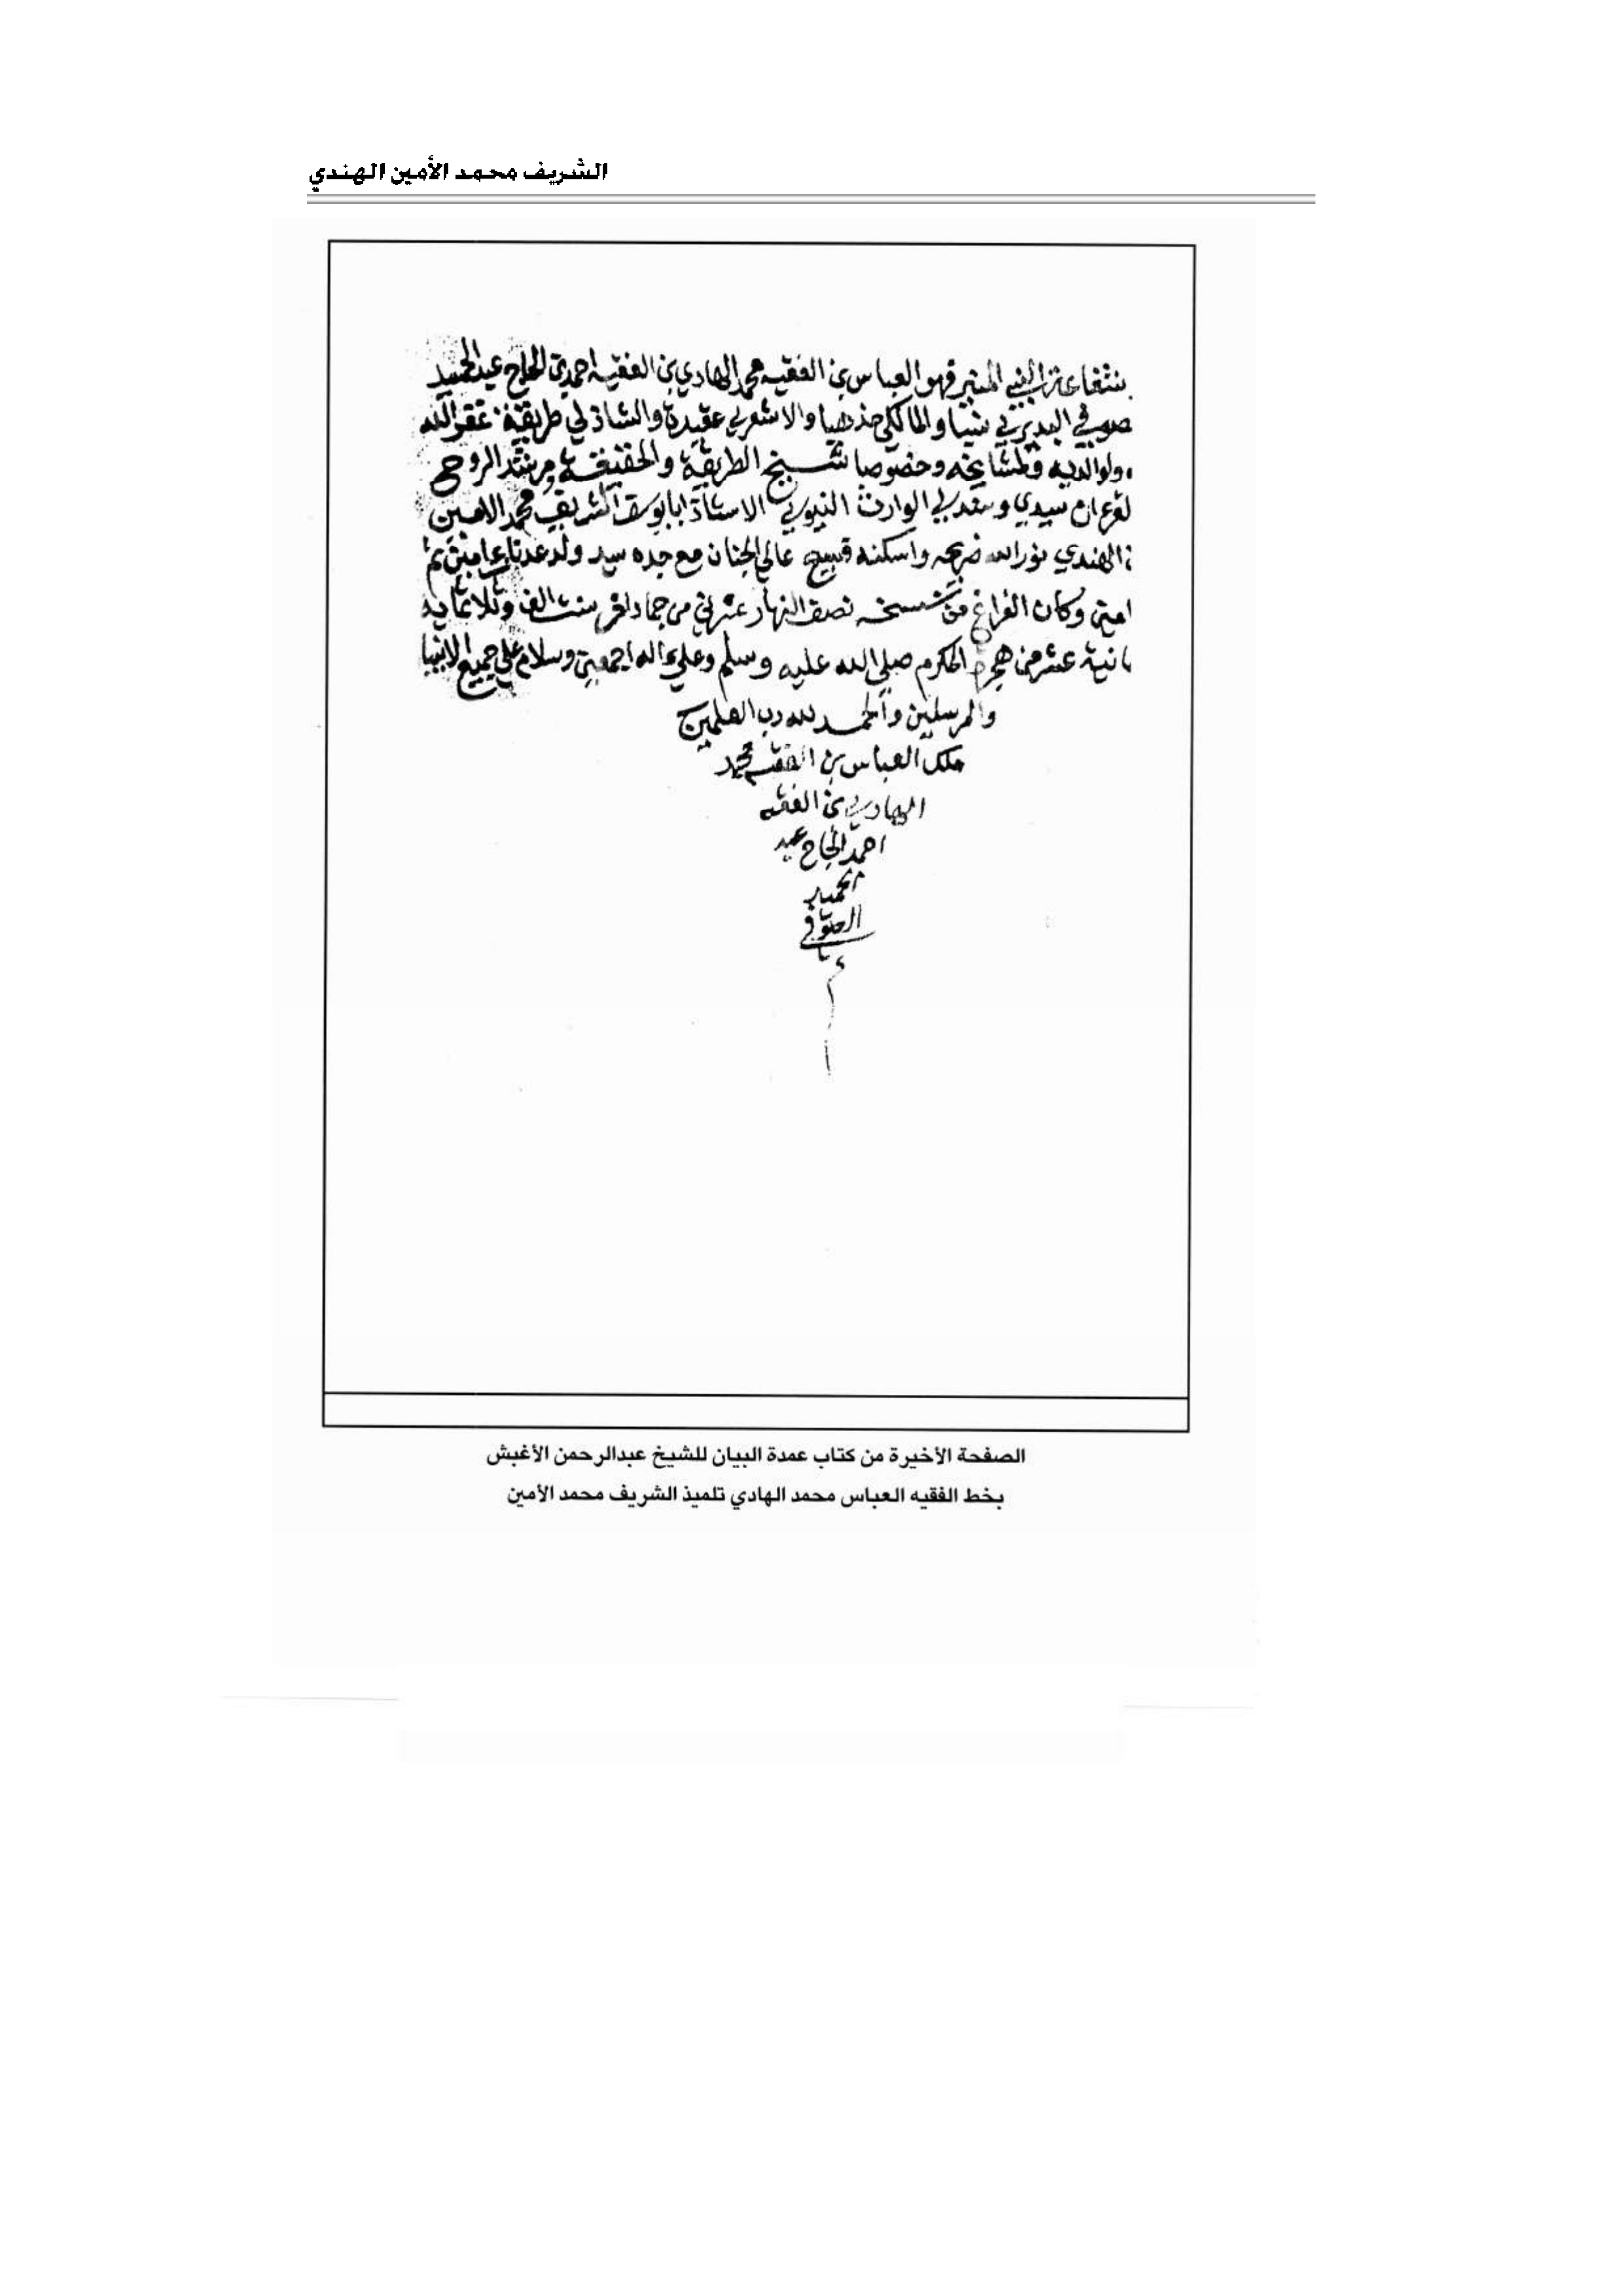 الشريف محمد الأمين الهندي
بشفاعة النبي المنير فهو العباس بن الفقيه محمد الهادي بن الفقيه احمد بن الحاج عبد الحميد
صوفي البديري نسبا والمالكي مذهبا والاشعري عقيدة والشاذلي طريقة غفر الله
ولوالديه ولمشايخه وخصوصا شيخ الطريقة والحقيقة ومرشد الروح
سيدي وسندي الوارث النبوي الاستاذ الشريف محمد الامين
الهندي نور الله ضريحه واسكنه فسيح عالي الجنان مع جده سيد ولد عدنان
امين وكان الفراغ من نسخه نصف النهار من جماد سنت الف وثلاثمايه
عشر من هجرة المكرم صلى الله عليه وسلم وعلى اله اجمعين وسلام على جميع الانبيا
والمرسلين والحمد لله رب العلمين
ملك العباس بن الفقيه محمد
الهادي بن الفقه
احمد الحاج عبد
الحميد
الصوفي
الصفحة الأخيرة من كتاب عمدة البيان للشيخ عبدالرحمن الأغبش
بخط الفقيه العباس محمد الهادي تلميذ الشريف محمد الأمين